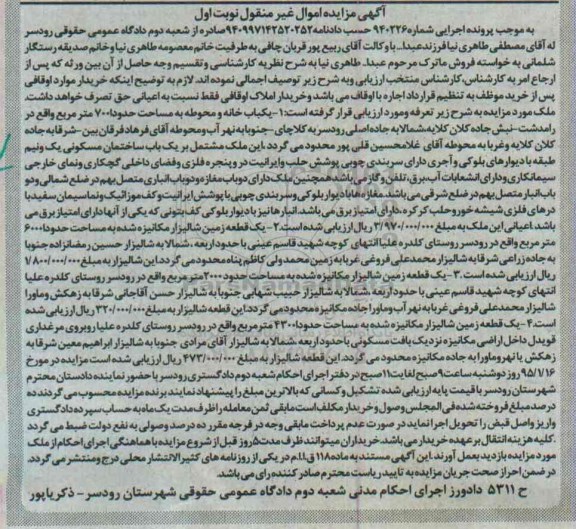 آگهی مزایده اموال غیر منقول نوبت اول
به موجب پرونده اجرایی شماره ۹۴۰۲۲۶ حسب دادنامه ۹۴۰۹۹۷۱۴۲۵۲۰۲۵۲ صادره از شعبه دوم دادگاه عمومی حقوقی رودسر
له آقای مصطفی طاهری نیا فرزند عبدا... با وکالت آقای ربیع پور قربان چافی به طرفیت خانم معصومه طاهری نیا و خانم صدیقه رستگار
شلمانی به خواسته فروش ماترک مرحوم عبدا... طاهری نیا به شرح نظریه کارشناسی و تقسیم وجه حاصل از آن بین ورثه که پس از
ارجاع امر به کارشناس، کارشناس منتخب ارزیابی و به شرح زیر توصیف اجمالی نموده اند. لازم به توضیح اینکه خریدار موارد اوقافی
پس از خرید موظف به تنظیم قرارداد اجاره با اوقاف می باشد و خریدار املاک اوقافی فقط نسبت به اعیانی حق تصرف خواهد داشت.
ملک مورد مزایده به شرح زیر تعرفه و مورد ارزیابی قرار گرفته است: ۱- یکباب خانه و محوطه به مساحت حدودا ۷۰۰ متر مربع واقع در
رامدشت- نبش جاده کلان کلایه، شمالا به جاده اصلی رودسر به کلاچای- جنوبا به نهر آب و محوطه آقای فرهاد فرقان بین- شرقا به جاده
کلان کلایه و غربا به محوطه آقای غلامحسین قلی پور محدود می گردد. این ملک مشتمل بر یک باب ساختمان مسکونی یک و نیم
طبقه با دیوارهای بلوکی و آجری دارای سربندی چوبی پوشش حلب و ایرانیت و در و پنجره فلزی و فضای داخلی گچکاری و نمای خارجی
سیمانکاری و دارای انشعابات آب، برق، تلفن و گاز می باشد همچنین ملک دارای دو باب مغازه و دو باب انباری متصل بهم در ضلع شمالی و دو
باب انبار متصل بهم در ضلع شرقی می باشد. مغازه ها با دیوار بلوکی و سربندی چوبی با پوشش ایرانیت و کف موزائیک و نما سیمان سفید با
درهای فلزی شیشه خور و حلب کرکره، دارای امتیاز برق می باشد. انبارها نیز با دیوار بلوکی کف بتونی که یکی از آنها دارای امتیاز برق می
باشد. اعیانی این ملک به مبلغ ۳/۹۷۰/۰۰۰/۰۰۰ ریال ارزیابی شده است. ۲- یک قطعه زمین شالیزار مکانیزه شده به مساحت حدودا ۶۰۰۰
متر مربع واقع در رودسر روستای کلدره علیا انتهای کوچه شهید قاسم عینی با حدود اربعه، شمالا به شالیزار حسین رمضانزاده جنوبا
به جاده زراعی شرقا به شالیزار محمدعلی فروغی غربا به زمین محمد ولی کاظم پناه محدود می گردد. این شالیزار به مبلغ ۱/۸۰۰/۰۰۰/۰۰۰
ریال ارزیابی شده است. ۳- یک قطعه زمین شالیزار مکانیزه شده به مساحت حدود ۲۰۰۰ متر مربع واقع در رودسر روستای کلدره علیا
انتهای کوچه شهید قاسم عینی با حدود اربعه شمالا به شالیزار حبیب شهابی جنوبا به شالیزار حسن آقاجانی شرقا به زهکش و ماورا
شالیزار محمدعلی فروغی غربا به نهر آب و ماورا جاده مکانیزه محدود می گردد. این قطعه شالیزار به مبلغ ۳۲۰/۰۰۰/۰۰۰ ریال ارزیابی شده
است. ۴- یک قطعه زمین شالیزار مکانیزه شده به مساحت حدودا ۴۳۰۰ متر مربع واقع در رودسر روستای کلدره علیا روبروی مرغداری
قویدل داخل اراضی مکانیزه نزدیک بافت مسکونی با حدود اربعه، شمالا به شالیزار آقای مرادی جنوبا به شالیزار ابراهیم معین شرقا به
زهکش یا نهر و ماورا به جاده مکانیزه محدود می گردد. این قطعه شالیزار به مبلغ ۴۷۳/۰۰۰/۰۰۰ ریال ارزیابی شده است مزایده در مورخ
۹۵/۱/۱۶ روز دوشنبه ساعت ۹ صبح لغایت ۱۱ صبح در دفتر اجرای احکام شعبه دوم دادگستری رودسر با حضور نماینده دادستان محترم
شهرستان رودسر با قیمت پایه ارزیابی شده تشکیل و کسانی که بالاترین مبلغ را پیشنهاد نمایند برنده مزایده محسوب می گردند ده
درصد مبلغ فروخته شده فی المجلس وصول و خریدار مکلف است مابقی ثمن معامله را ظرف مدت یک ماه به حساب سپرده دادگستری
واریز و اصل قبض را تحویل اجرا نماید در صورت عدم پرداخت مابقی وجه در فرجه مقرر ده درصد وصولی به نفع دولت ضبط می گردد
. کلیه هزینه انتقال بر عهده خریدار می باشد. خریداران میتوانند ظرف مدت ۵ روز قبل از شروع مزایده با هماهنگی اجرای احکام از ملک
مورد مزایده بازدید بعمل آورند. این آگهی مستند به ماده ۱۱۸ ق.ا.م در یکی از روزنامه های کثیر الانتشار محلی درج و منتشر می گردد.
در ضمن احراز صحت جریان مزایده به تایید ریاست محترم صادر کننده رای می باشد.
ح ۵۳۱۱ دادورز اجرای احکام مدنی شعبه دوم دادگاه عمومی حقوقی شهرستان رودسر- ذکریاپور